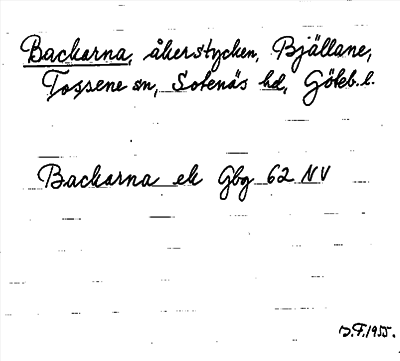 Backarna, åkerstycken, Bjällane,
Tossene sn, Sotenäs hd, Göteb. l.
Backarna ek Gbg 62 NV
B.F. 1955.